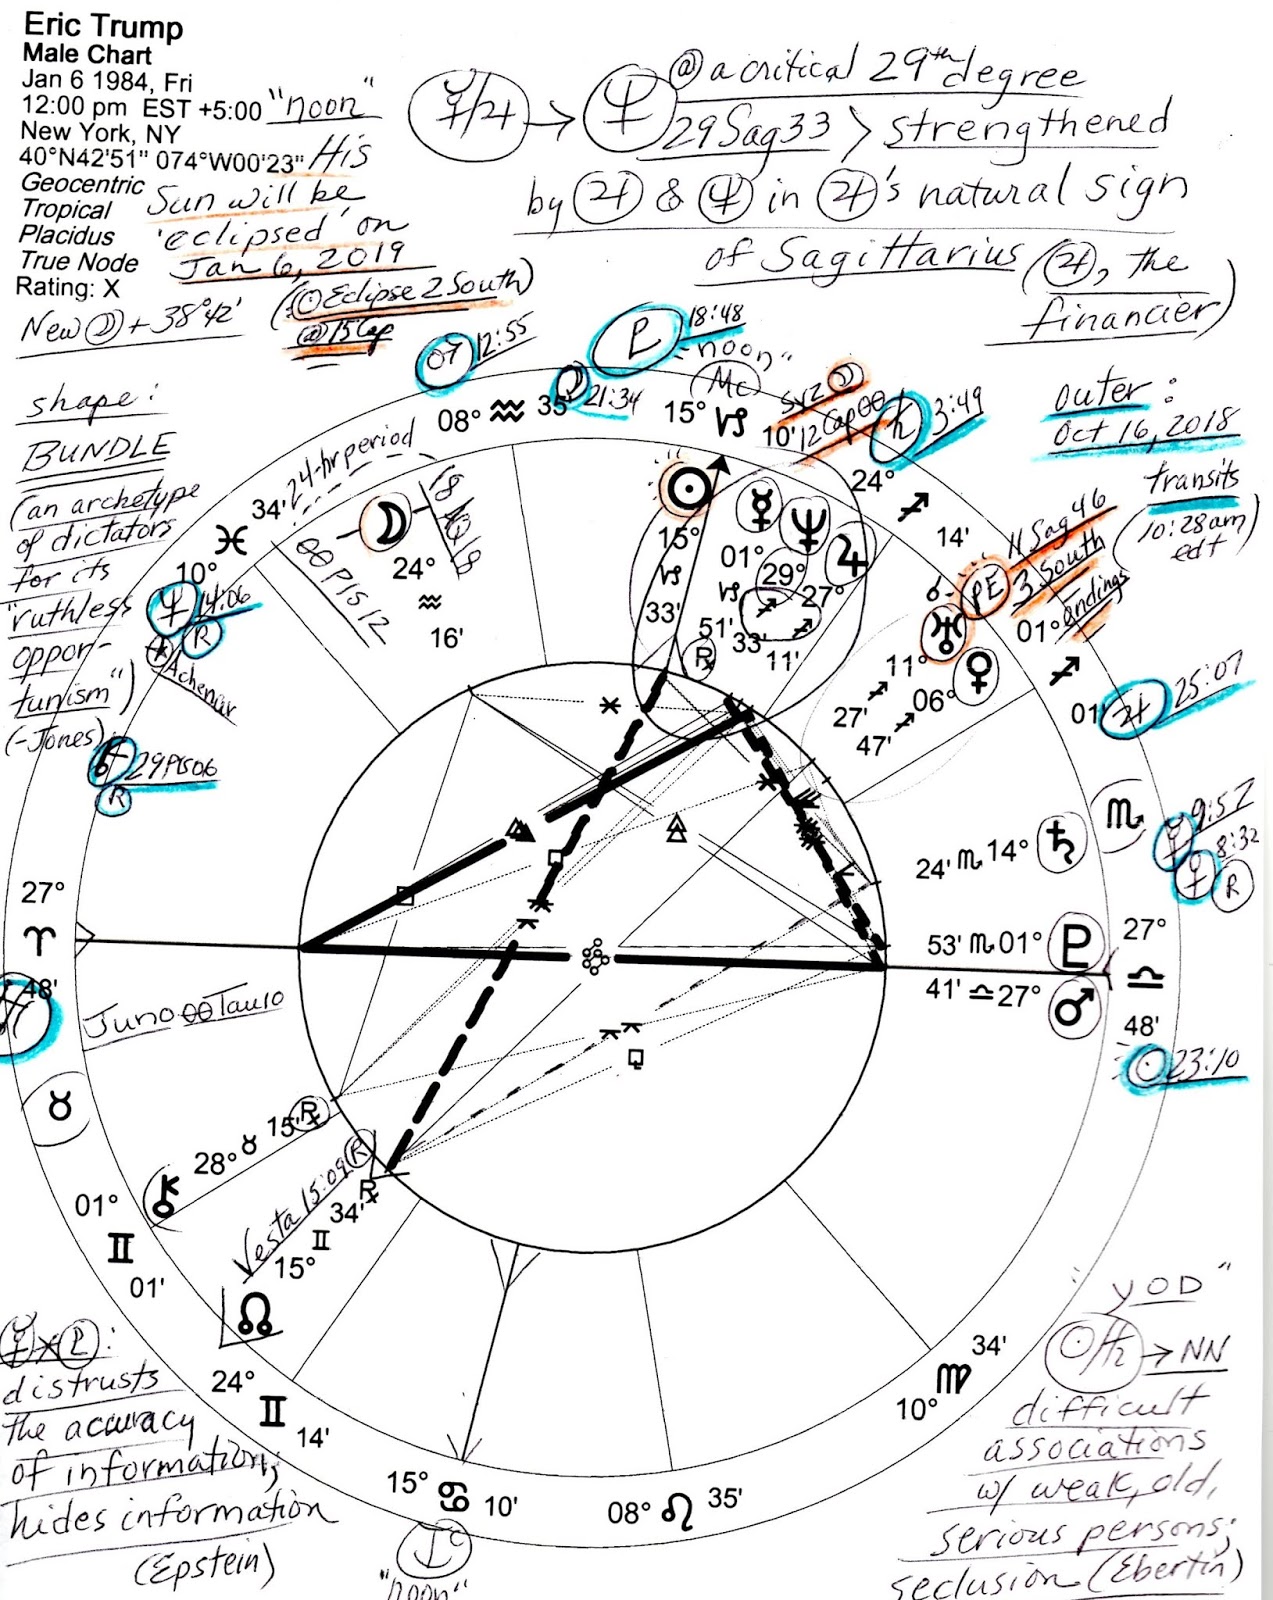 Eric Trump
Male Chart
Jan 6 1984, Fri
12:00 pm EST +5:00 "noon"
New York, NY
40°N42'51" 074°W00'23"
Geocentric
Tropical
Placidus
True Node
Rating: X
His
Sun will be
'eclipsed' on
Jan 6, 2019
(☉ Eclipse 2 South)
@ 15 Cap
New ☽ + 38°42'
☿/♃ → ♆ @ a critical 29th degree
29 Sag 33 > strengthened
by ♃ & ♆ in ♃'s natural sign
of Sagittarius (♃, the
financier)
shape:
BUNDLE
(an archetype
of dictators
for its
"ruthless
oppor-
tunism")
(-Jones)
outer:
Oct 16, 2018
transits
(10:28am
edt)
♂ 12:55
☽ 21:34
♇ 18:48
"noon"
Mc
SYZ ☽
12 Cap 00
♄ 3:49
08° ♒ 35'
15° ♑ 10'
24° ♐ 14'
24-hr period
00 Pis 12
34' ♓ 10°
☽ 24° ♒ 16'
☉ 15° ♑ 33'
☿ 01° ♑ 51' ℞
♆ 29° ♐ 33'
♃ 27° ♐ 11'
PE
11 Sag 46
3 South
endings
♅ 11° ♐ 27'
♀ 06° ♐ 47'
01° ♐ 01'
♃ 25:07
♆ 14:06
R
Achenar
29 Pis 06
R
♏
☿ 9:57
♀ 8:32
R
24' ♏ 14° ♄
53' ♏ 01° ♇
41' ♎ 27° ♂
27° ♎ 48'
☉ 23:10
27° ♈ 48'
Juno 00 Tau 10
♉
28° ♉ 15' ℞
Vesta 15:09 R
15° ♊ 34' ℞
☊
01° ♊ 01'
24° ♊ 14'
15° ♋ 10'
Ic
"noon"
08° ♌ 35'
10° ♍ 34'
☿ ⚹ ♇:
distrusts
the accuracy
of information;
hides information
(Epstein)
YOD
☉/♄ → NN
difficult
associations
w/ weak, old,
serious persons;
seclusion (Ebertin)